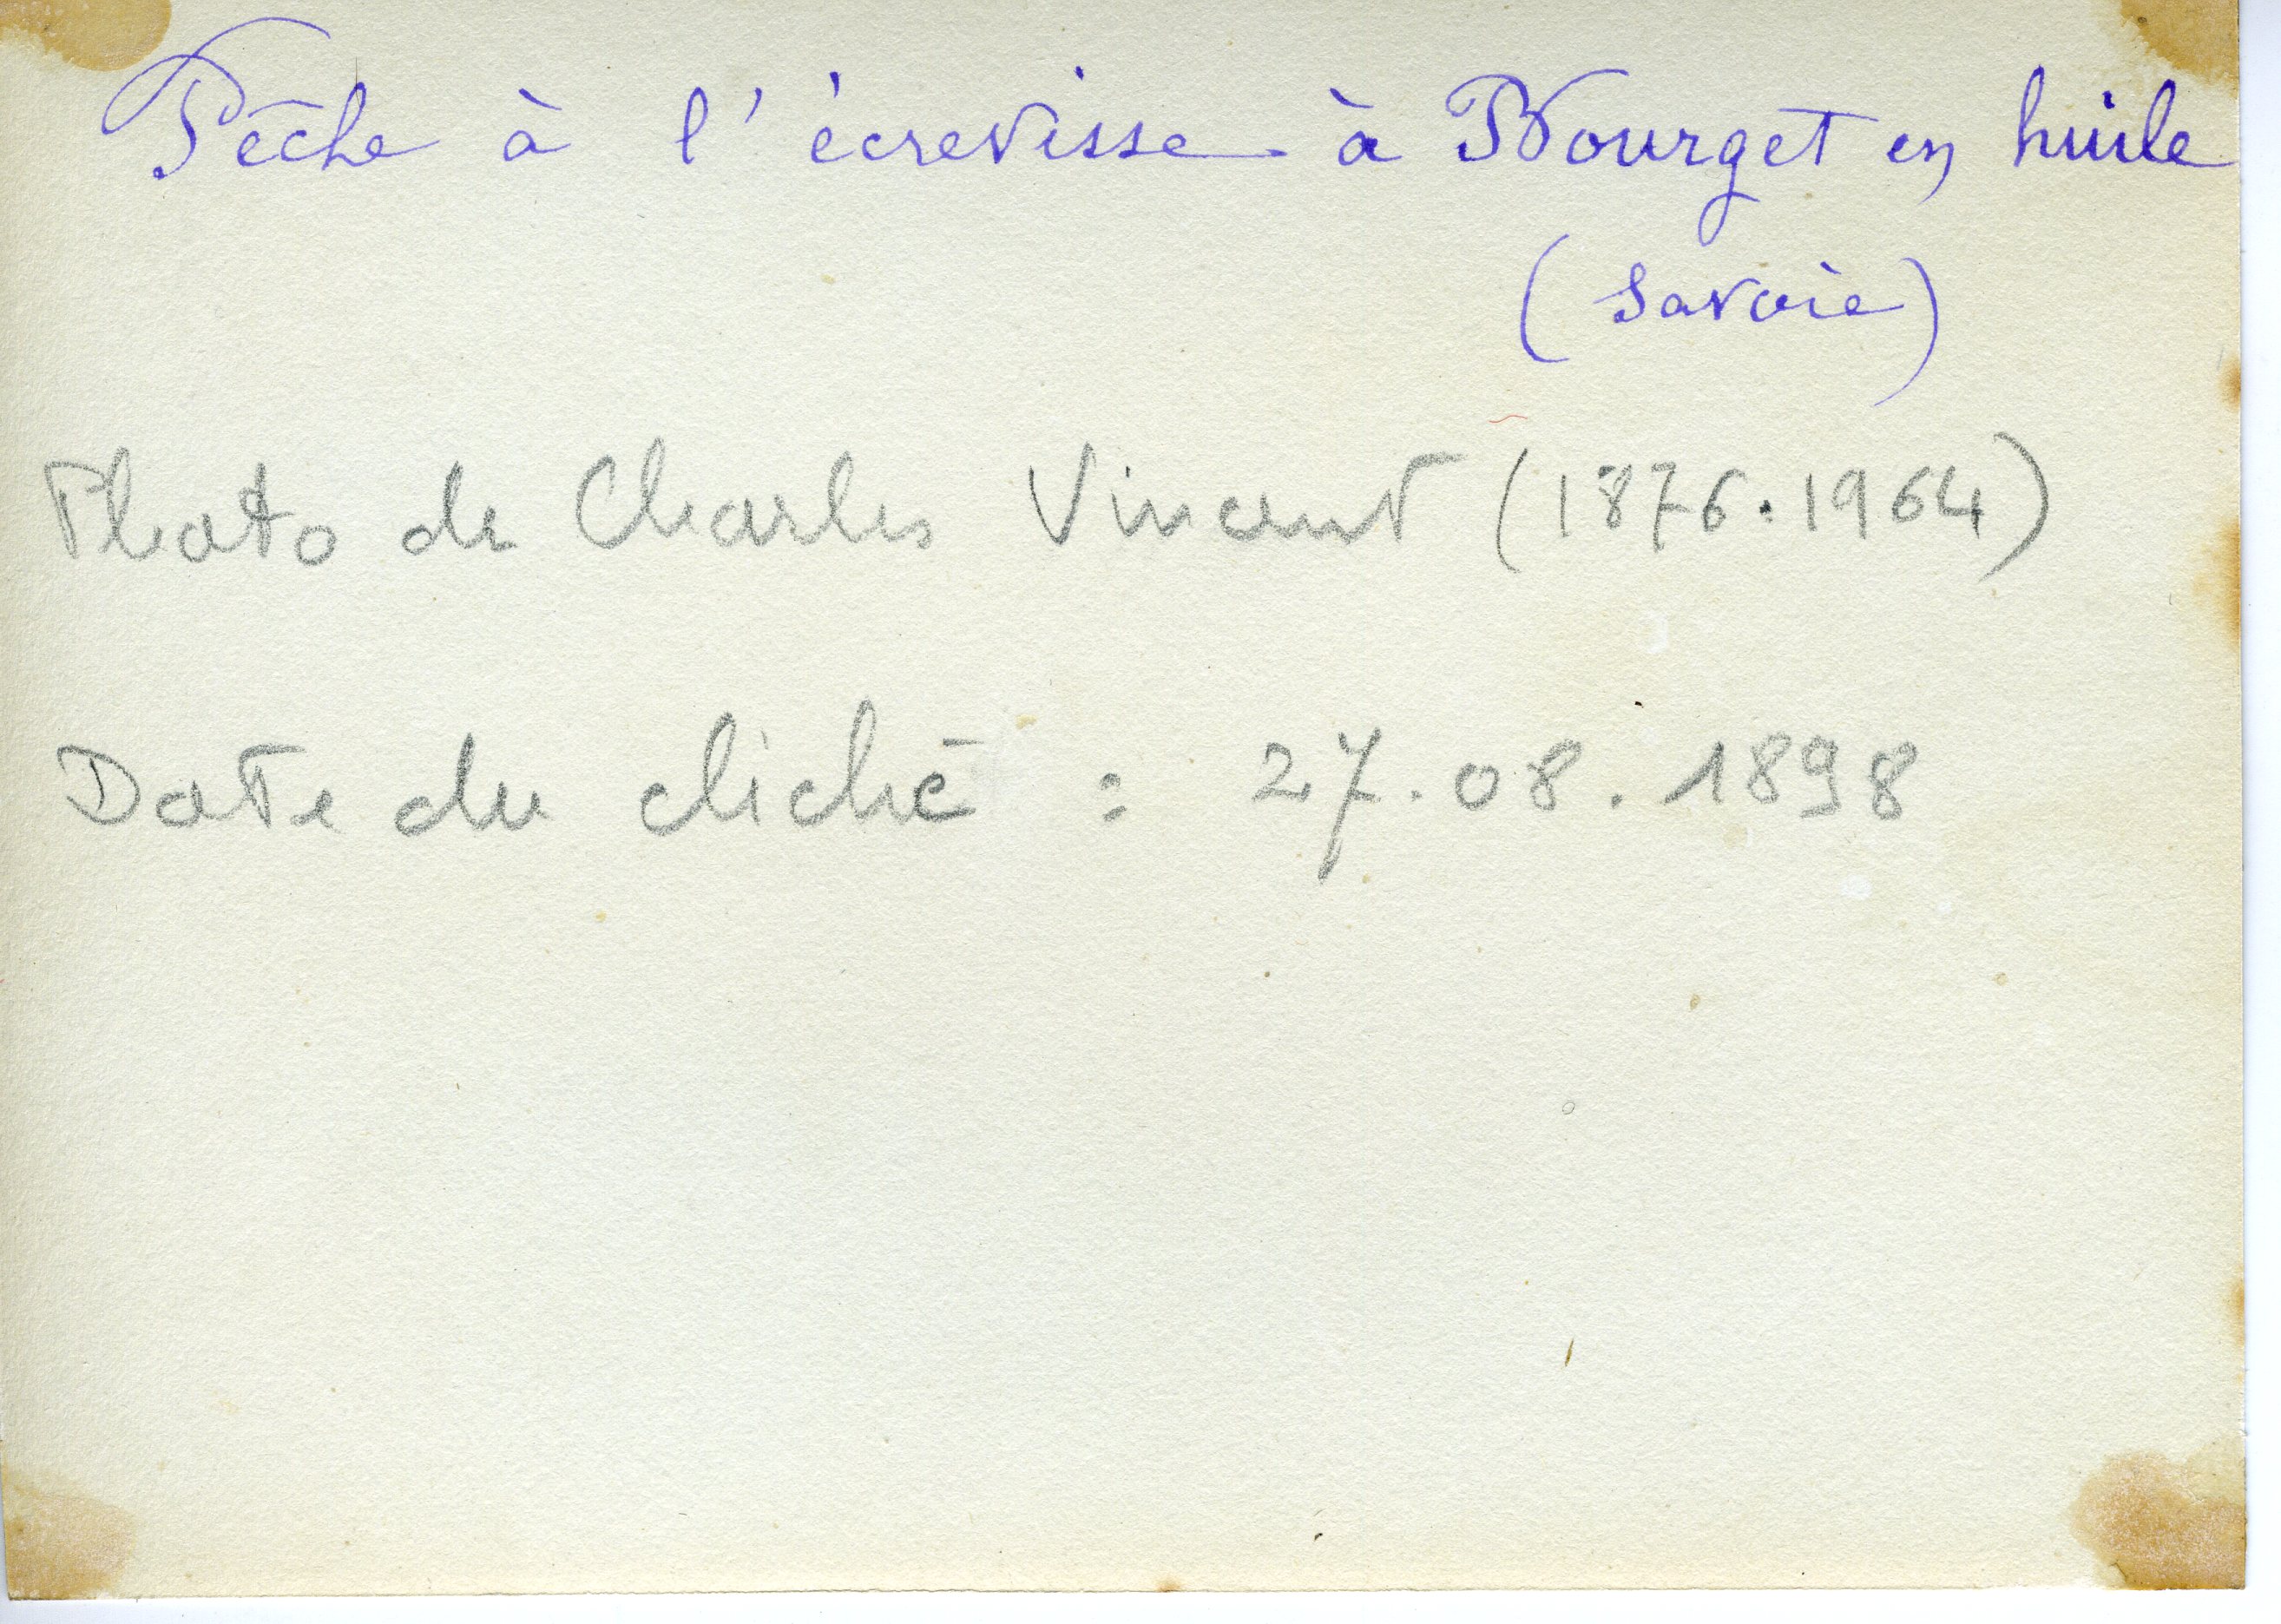 Pêche à l'écrevisse à Bourget en huile
(Savoie)
Photo de Charles Vincent (1876.1964)
Date du cliché : 27.08.1898